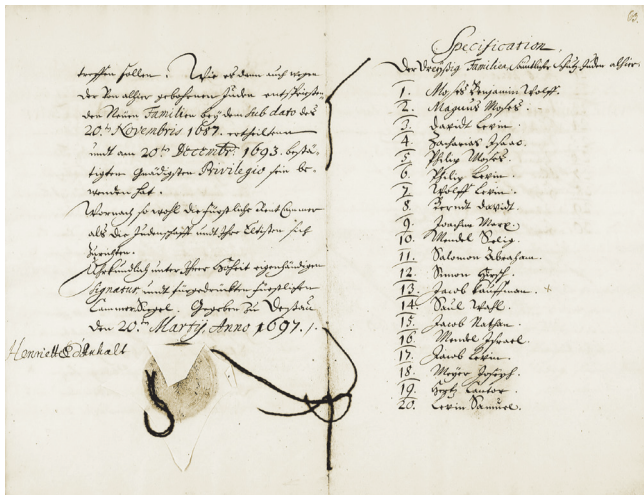 treffen sollen. Wie es dann auch wegen
der von alhier gebohrnen Juden
den Neuen Familien bey den sub dato des
20.ten Novembris 1687. ertheilten
undt am 20.ten Decembr: 1693. bestä-
tigten Gnädigsten Privilegio sein be-
wenden hat.
Wornach so wohl die Fürstliche Rent Cammer
als die Judenschafft undt Ihre Eltisten sich
zurichten.
Uhrkundlich unter Ihrer Hoheit eigenhändigen
Signatur, undt fürgedruckten Fürstlichen
Cammer Siegel. Gegeben zu Deßau
den 20.ten Martij Anno 1697.
Henriette
63.
Specification
Der Dreyßig Familien Sämtlicher Schutz Juden alhier
1. Moses Benjamin Wolff.
2. Magnus Moses.
3. Davidt Levin.
4. Zacharias Isaac.
5. Philip Moses.
6. Philip Levin.
7. Wolff Levin.
8. Berndt Davidt.
9. Joachim Marx.
10. Mendel Selig.
11. Salomon Abraham.
12. Simon Hirsch.
13. Jacob Kauffman. +
14. Saul Wahl.
15. Jacob Nathan.
16. Mendel Israel.
17. Jacob Levin.
18. Meyer Joseph.
19. Hertz Cantor.
20. Levin Samuel.